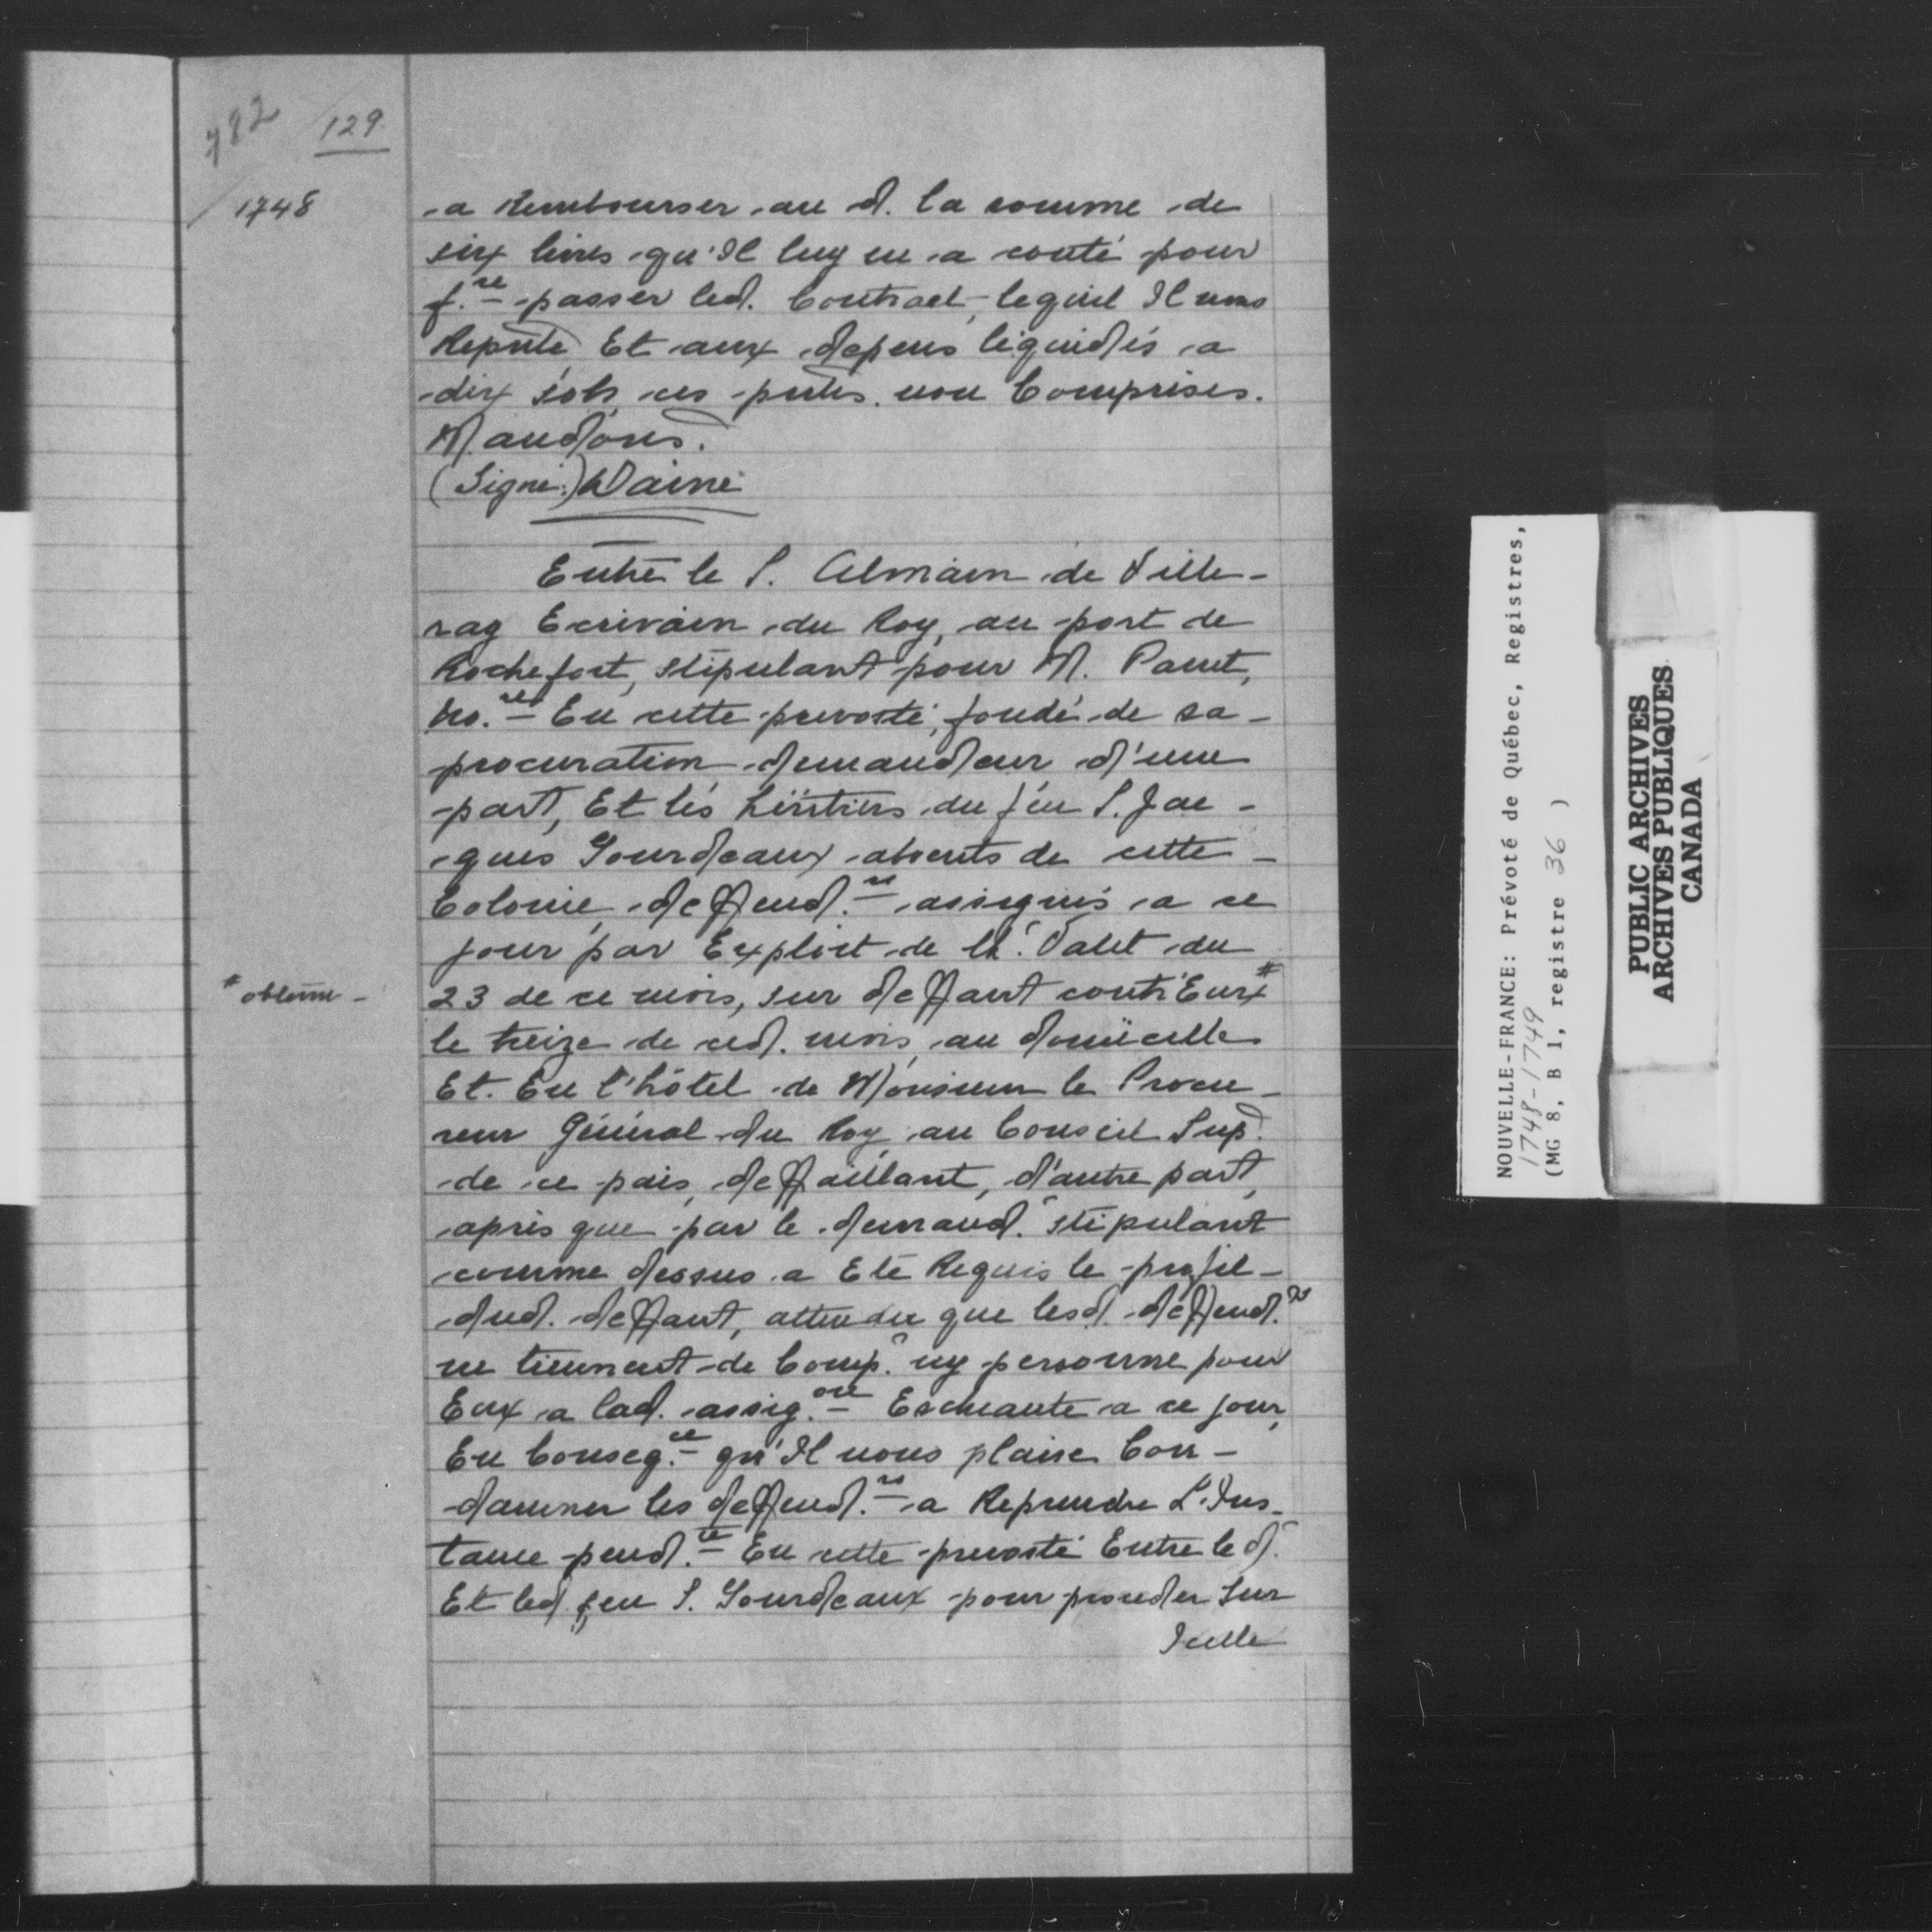 782 129
1748
a Rembourser au d. la somme de
six livres qu'Il luy en a couté pour
f.re passer led. Contract, lequel Il nous
Repnte Et aux depens liquidés a
dix sols ces pntes. non Comprises.
Mandons.
(Signé:) Daine
Entre le S. Almain de Ville-
ray Ecrivain du Roy, au port de
Rochefort, stipulant pour M. Panet,
no.re En cette prevosté, fondé de sa-
procuration demandeur d'une
part, Et les héritiers du feu S. Jac-
ques Gourdeaux absents de cette-
Colonie, deffend.rs assignés a ce
jour par Exploit de th. Valet du
23 de ce mois, sur deffaut contr'Eux #
# obtenu-
le treize de ced. mois au domicille
Et. En l'hôtel de Monsieur le Procu-
reur Général du Roy au Conseil Sup.
de ce païs, deffaillant, d'autre part,
après que par le demand. stipulant
comme dessus a Eté Requis le profit-
dud. deffaut, attendu que lesd. deffend.rs
ne tiennent de Comp. ny personne pour
Eux a lad. assig.on Escheante a ce jour,
En Conseq.ce qu'Il nous plaise Con-
damner les deffend.rs a Reprendre L'Ins-
tance pend.te En cette prevosté Entre le d.
Et led. feu S. Gourdeaux pour proceder Sur
Icelle
NOUVELLE-FRANCE: Prévoté de Québec, Registres,
1748-1749
(MG 8, B 1, registre 36 )
PUBLIC ARCHIVES
ARCHIVES PUBLIQUES
CANADA